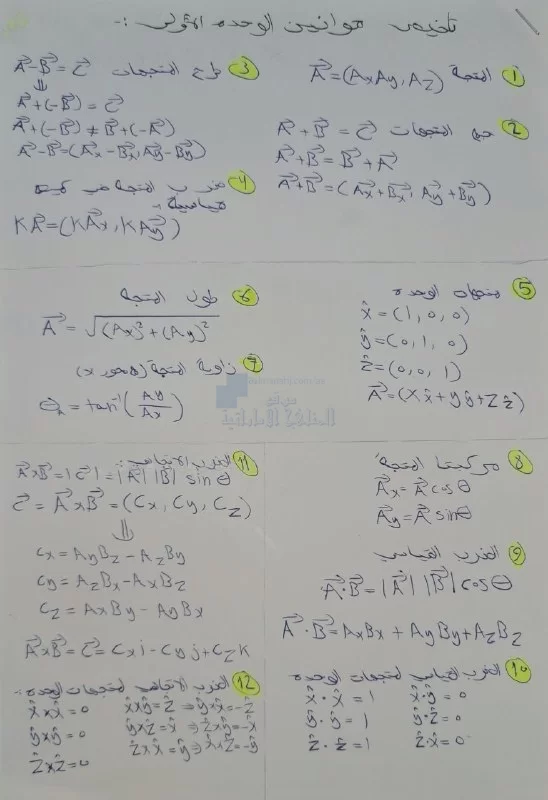 تلخيص قوانين الوحده الأولى :-
1 المتجة A⃗ = (Ax, Ay, Az)
2 جمع المتجهات A⃗ + B⃗ = C⃗
A⃗ + B⃗ = B⃗ + A⃗
A⃗ + B⃗ = (A⃗x + B⃗x, A⃗y + B⃗y)
3 طرح المتجهات A⃗ - B⃗ = C⃗
⇓
A⃗ + (-B⃗) = C⃗
A⃗ + (-B⃗) ≠ B⃗ + (-A⃗)
A⃗ - B⃗ = (A⃗x - B⃗x, A⃗y - B⃗y)
4 ضرب المتجة في كمية
قياسية :-
KA⃗ = (KA⃗x, KA⃗y)
5 متجهات الوحده
x̂ = (1, 0, 0)
ŷ = (0, 1, 0)
ẑ = (0, 0, 1)
A⃗ = (Xx̂ + yŷ + Zẑ)
6 طول المتجة
A⃗ = √(Ax)² + (Ay)²
7 زاوية المتجة (لمحور x)
θ = tan⁻¹ (Ay/Ax)
موقع
المناهج الإماراتية
8 مركبتا المتجة
A⃗x = A⃗ cos θ
A⃗y = A⃗ sin θ
9 الضرب القياسي
A⃗ · B⃗ = |A⃗| |B⃗| cos θ
A⃗ · B⃗ = AxBx + AyBy + AzBz
10 الضرب القياسي لمتجهات الوحده
x̂ · x̂ = 1 x̂ · ŷ = 0
ŷ · ŷ = 1 ŷ · ẑ = 0
ẑ · ẑ = 1 ẑ · x̂ = 0
11 الضرب الاتجاهي :-
A⃗ x B⃗ = |C⃗| = |A⃗| |B⃗| sin θ
C⃗ = A⃗ x B⃗ = (Cx, Cy, Cz)
⇓
Cx = AyBz - AzBy
Cy = AzBx - AxBz
Cz = AxBy - AyBx
A⃗ x B⃗ = C⃗ = Cxi - Cyj + Cz k
12 الضرب الاتجاهي لمتجهات الوحده :-
x̂ x x̂ = 0 x̂ x ŷ = ẑ ⇒ ŷ x x̂ = -ẑ
ŷ x ŷ = 0 ŷ x ẑ = x̂ ⇒ ẑ x ŷ = -x̂
ẑ x ẑ = 0 ẑ x x̂ = ŷ ⇒ x̂ x ẑ = -ŷ